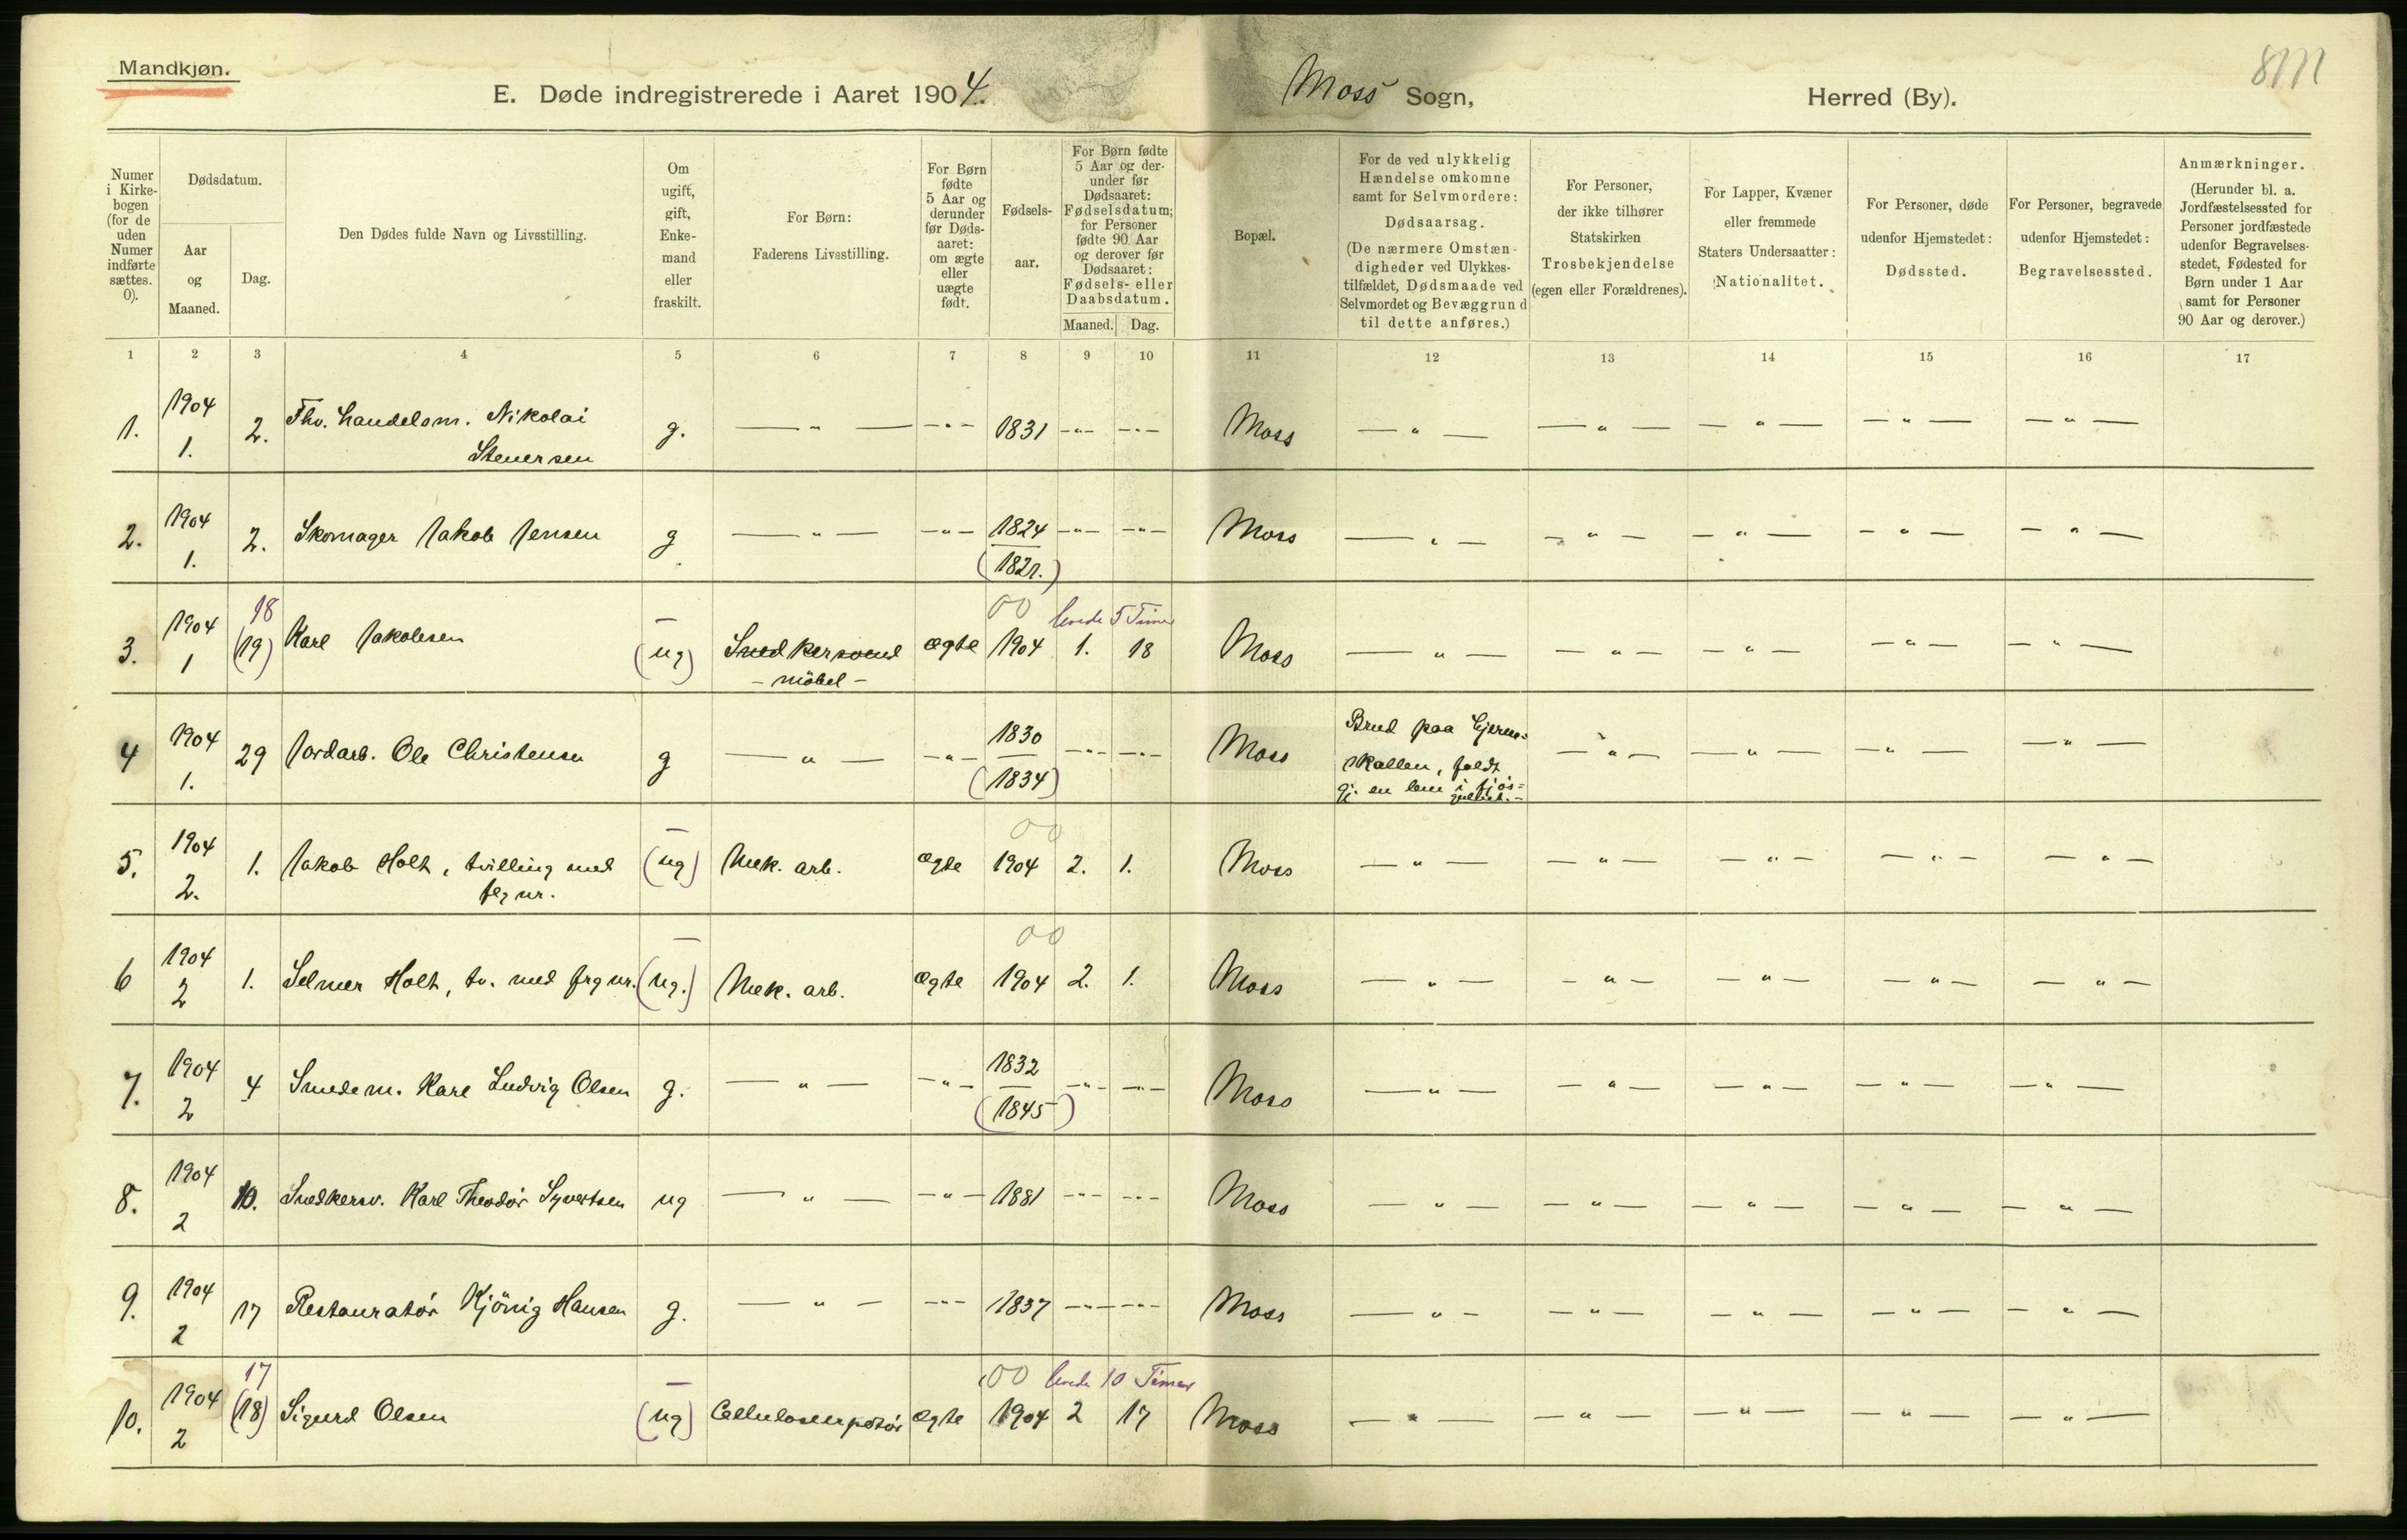 Mandkjøn.
E. Døde indregistrerede i Aaret 1904.
Moss Sogn,
Herred (By).
8111
Numer i Kirkebogen (for de uden Numer indførte sættes. 0).
Dødsdatum.
Aar og Maaned.
Dag.
Den Dødes fulde Navn og Livsstilling.
Om ugift, gift, Enkemand eller fraskilt.
For Børn: Faderens Livsstilling.
For Børn fødte 5 Aar og derunder før Dødsaaret: om ægte eller uægte født.
Fødselsaar.
For Børn fødte 5 Aar og derunder før Dødsaaret: Fødselsdatum; for Personer fødte 90 Aar og derover før Dødsaaret: Fødsels- eller Daabsdatum.
Maaned. Dag.
Bopæl.
For de ved ulykkelig Hændelse omkomne samt for Selvmordere: Dødsaarsag. (De nærmere Omstændigheder ved Ulykkestilfældet, Dødsmaade ved Selvmordet og Bevæggrund til dette anføres.)
For Personer, der ikke tilhører Statskirken Trosbekjendelse (egen eller Forældrenes).
For Lapper, Kvæner eller fremmede Staters Undersaatter: Nationalitet.
For Personer, døde udenfor Hjemstedet: Dødssted.
For Personer, begravede udenfor Hjemstedet: Begravelsessted.
Anmærkninger. (Herunder bl. a. Jordfæstelsessted for Personer jordfæstede udenfor Begravelsesstedet, Fødested for Børn under 1 Aar samt for Personer 90 Aar og derover.)
1 2 3 4 5 6 7 8 9 10 11 12 13 14 15 16 17
1. 1904 1. 2. Fhv. handelsm. Nikolai Stenersen g. — " — — " — 1831 — " — — " — Moss — " — — " — — " — — " — — " —
2. 1904 1. 2. Skomager Jakob Jensen g — " — — " — 1824 (1821.) — " — — " — Moss — " — — " — — " — — " — — " —
3. 1904 1 18 (19) Karl Jakobsen — (ug) Snedkersvend - möbel - ægte 00 1904 levede 5 Timer 1. 18 Moss — " — — " — — " — — " — — " —
4 1904 1. 29 Jordarb. Ole Christensen g — " — — " — 1830 (1834) — " — — " — Moss Brud paa Hjerneskallen, faldt gj. en lem i fjös= — " — — " — — " — — " —
5. 1904 2. 1. Jakob Holt, tvilling med flg nr. — (ug) Mek. arb. ægte 00 1904 2. 1. Moss — " — — " — — " — — " — — " —
6 1904 2 1. Selmer Holt, tv. med frg nr. — (ug.) Mek. arb. ægte 00 1904 2. 1. Moss — " — — " — — " — — " — — " —
7. 1904 2 4 Smedem. Karl Ludvig Olsen g. — " — — " — 1832 (1845) — " — — " — Moss — " — — " — — " — — " — — " —
8. 1904 2 10. Snedkersv. Karl Theodor Syvertsen ug — " — — " — 1881 — " — — " — Moss — " — — " — — " — — " — — " —
9. 1904 2 17 Restauratør Kjönig Hansen g. — " — — " — 1837 — " — — " — Moss — " — — " — — " — — " — — " —
10. 1904 2 17 (18) Sigurd Olsen — (ug) ægte 00 1904 levede 10 Timer 2 17 Moss — " — — " — — " — — " — — " —